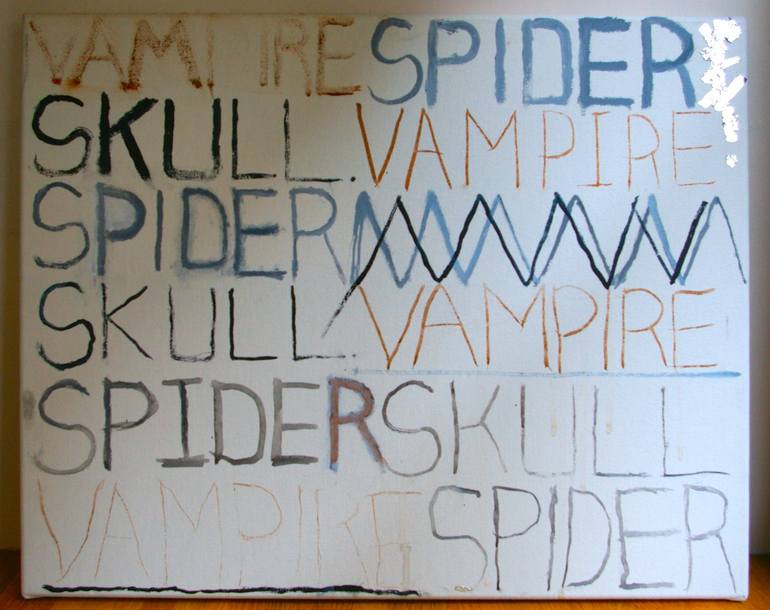 VAMPIRE SPIDER
SKULL. VAMPIRE
SPIDER
SKULL. VAMPIRE
SPIDER SKULL
VAMPIRE SPIDER